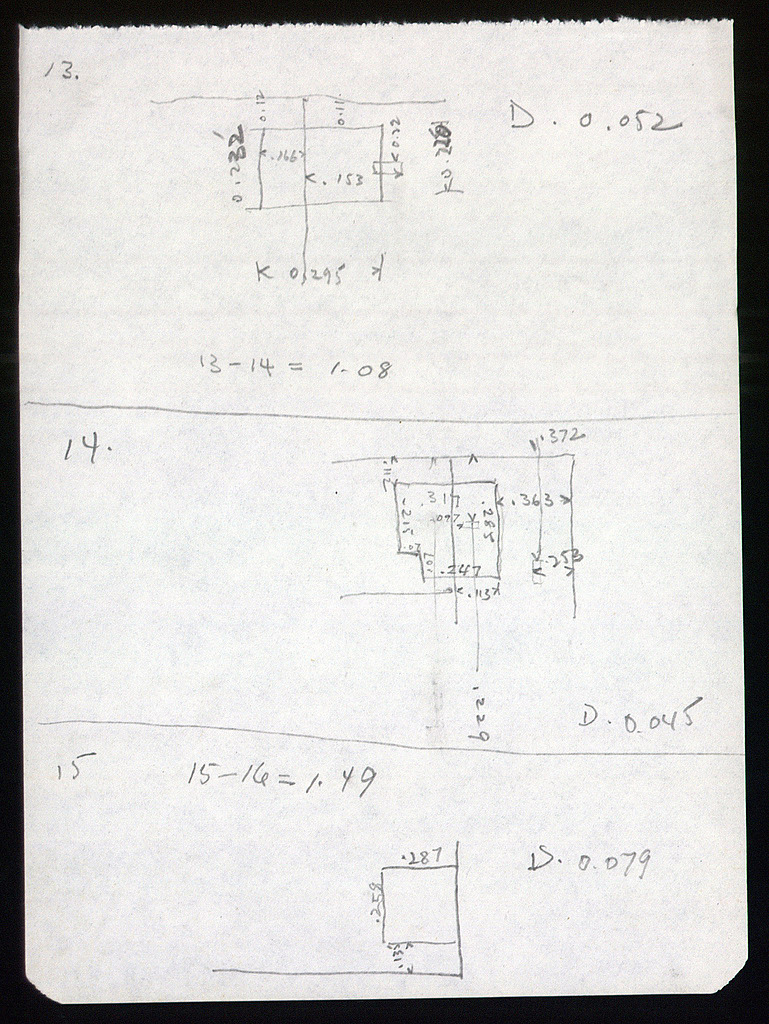 13.
0.12
0.11
D. 0.052
0.232
.166
0.22
.153
0.295
13-14 = 1.08
14.
.372
.211
.317
.285
.363
.215
.097
.107
.253
.247
.113
.229
D. 0.045
15
15-16 = 1.49
.287
D. 0.079
.258
.135